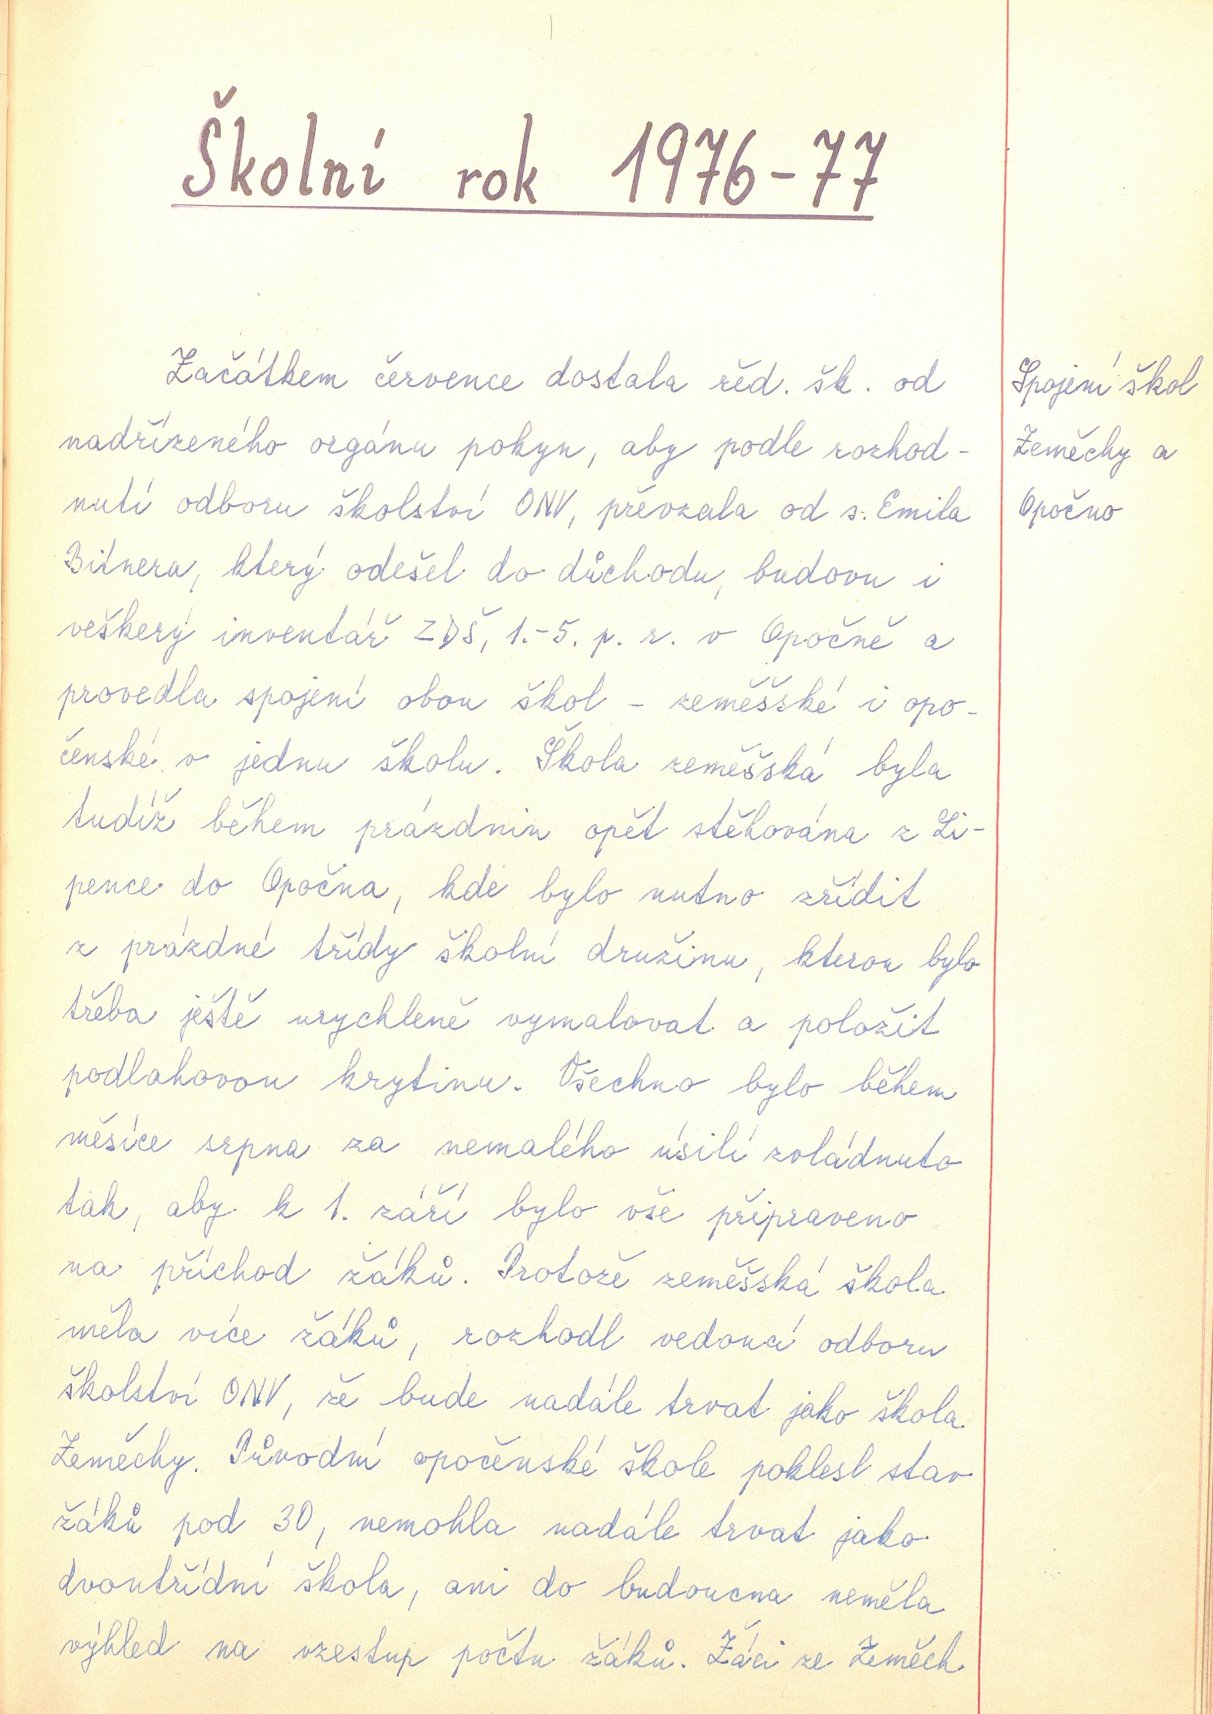 Školní rok 1976-77
Začátkem července dostala řed. šk. od
nadřízeného orgánu pokyn, aby podle rozhod-
nutí odboru školství ONV, převzala od s. Emila
Bitnera, který odešel do důchodu, budovu i
veškerý inventář ZDŠ, 1.-5. p. r. v Opočně a
provedla spojení obou škol - zeměšské i opo-
čenské v jednu školu. Škola zeměšská byla
tudíž během prázdnin opět stěhována z Li-
pence do Opočna, kde bylo nutno zřídit
z prázdné třídy školní družinu, kterou bylo
třeba ještě urychleně vymalovat a položit
podlahovou krytinu. Všechno bylo během
měsíce srpna za nemalého úsilí zvládnuto
tak, aby k 1. září bylo vše připraveno
na příchod žáků. Protože zeměšská škola
měla více žáků, rozhodl vedoucí odboru
školství ONV, že bude nadále trvat jako škola
Zeměchy. Původní opočenské škole poklesl stav
žáků pod 30, nemohla nadále trvat jako
dvoutřídní škola, ani do budoucna neměla
výhled na vzestup počtu žáků. Žáci ze Zeměch
Spojení škol
Zeměchy a
Opočno